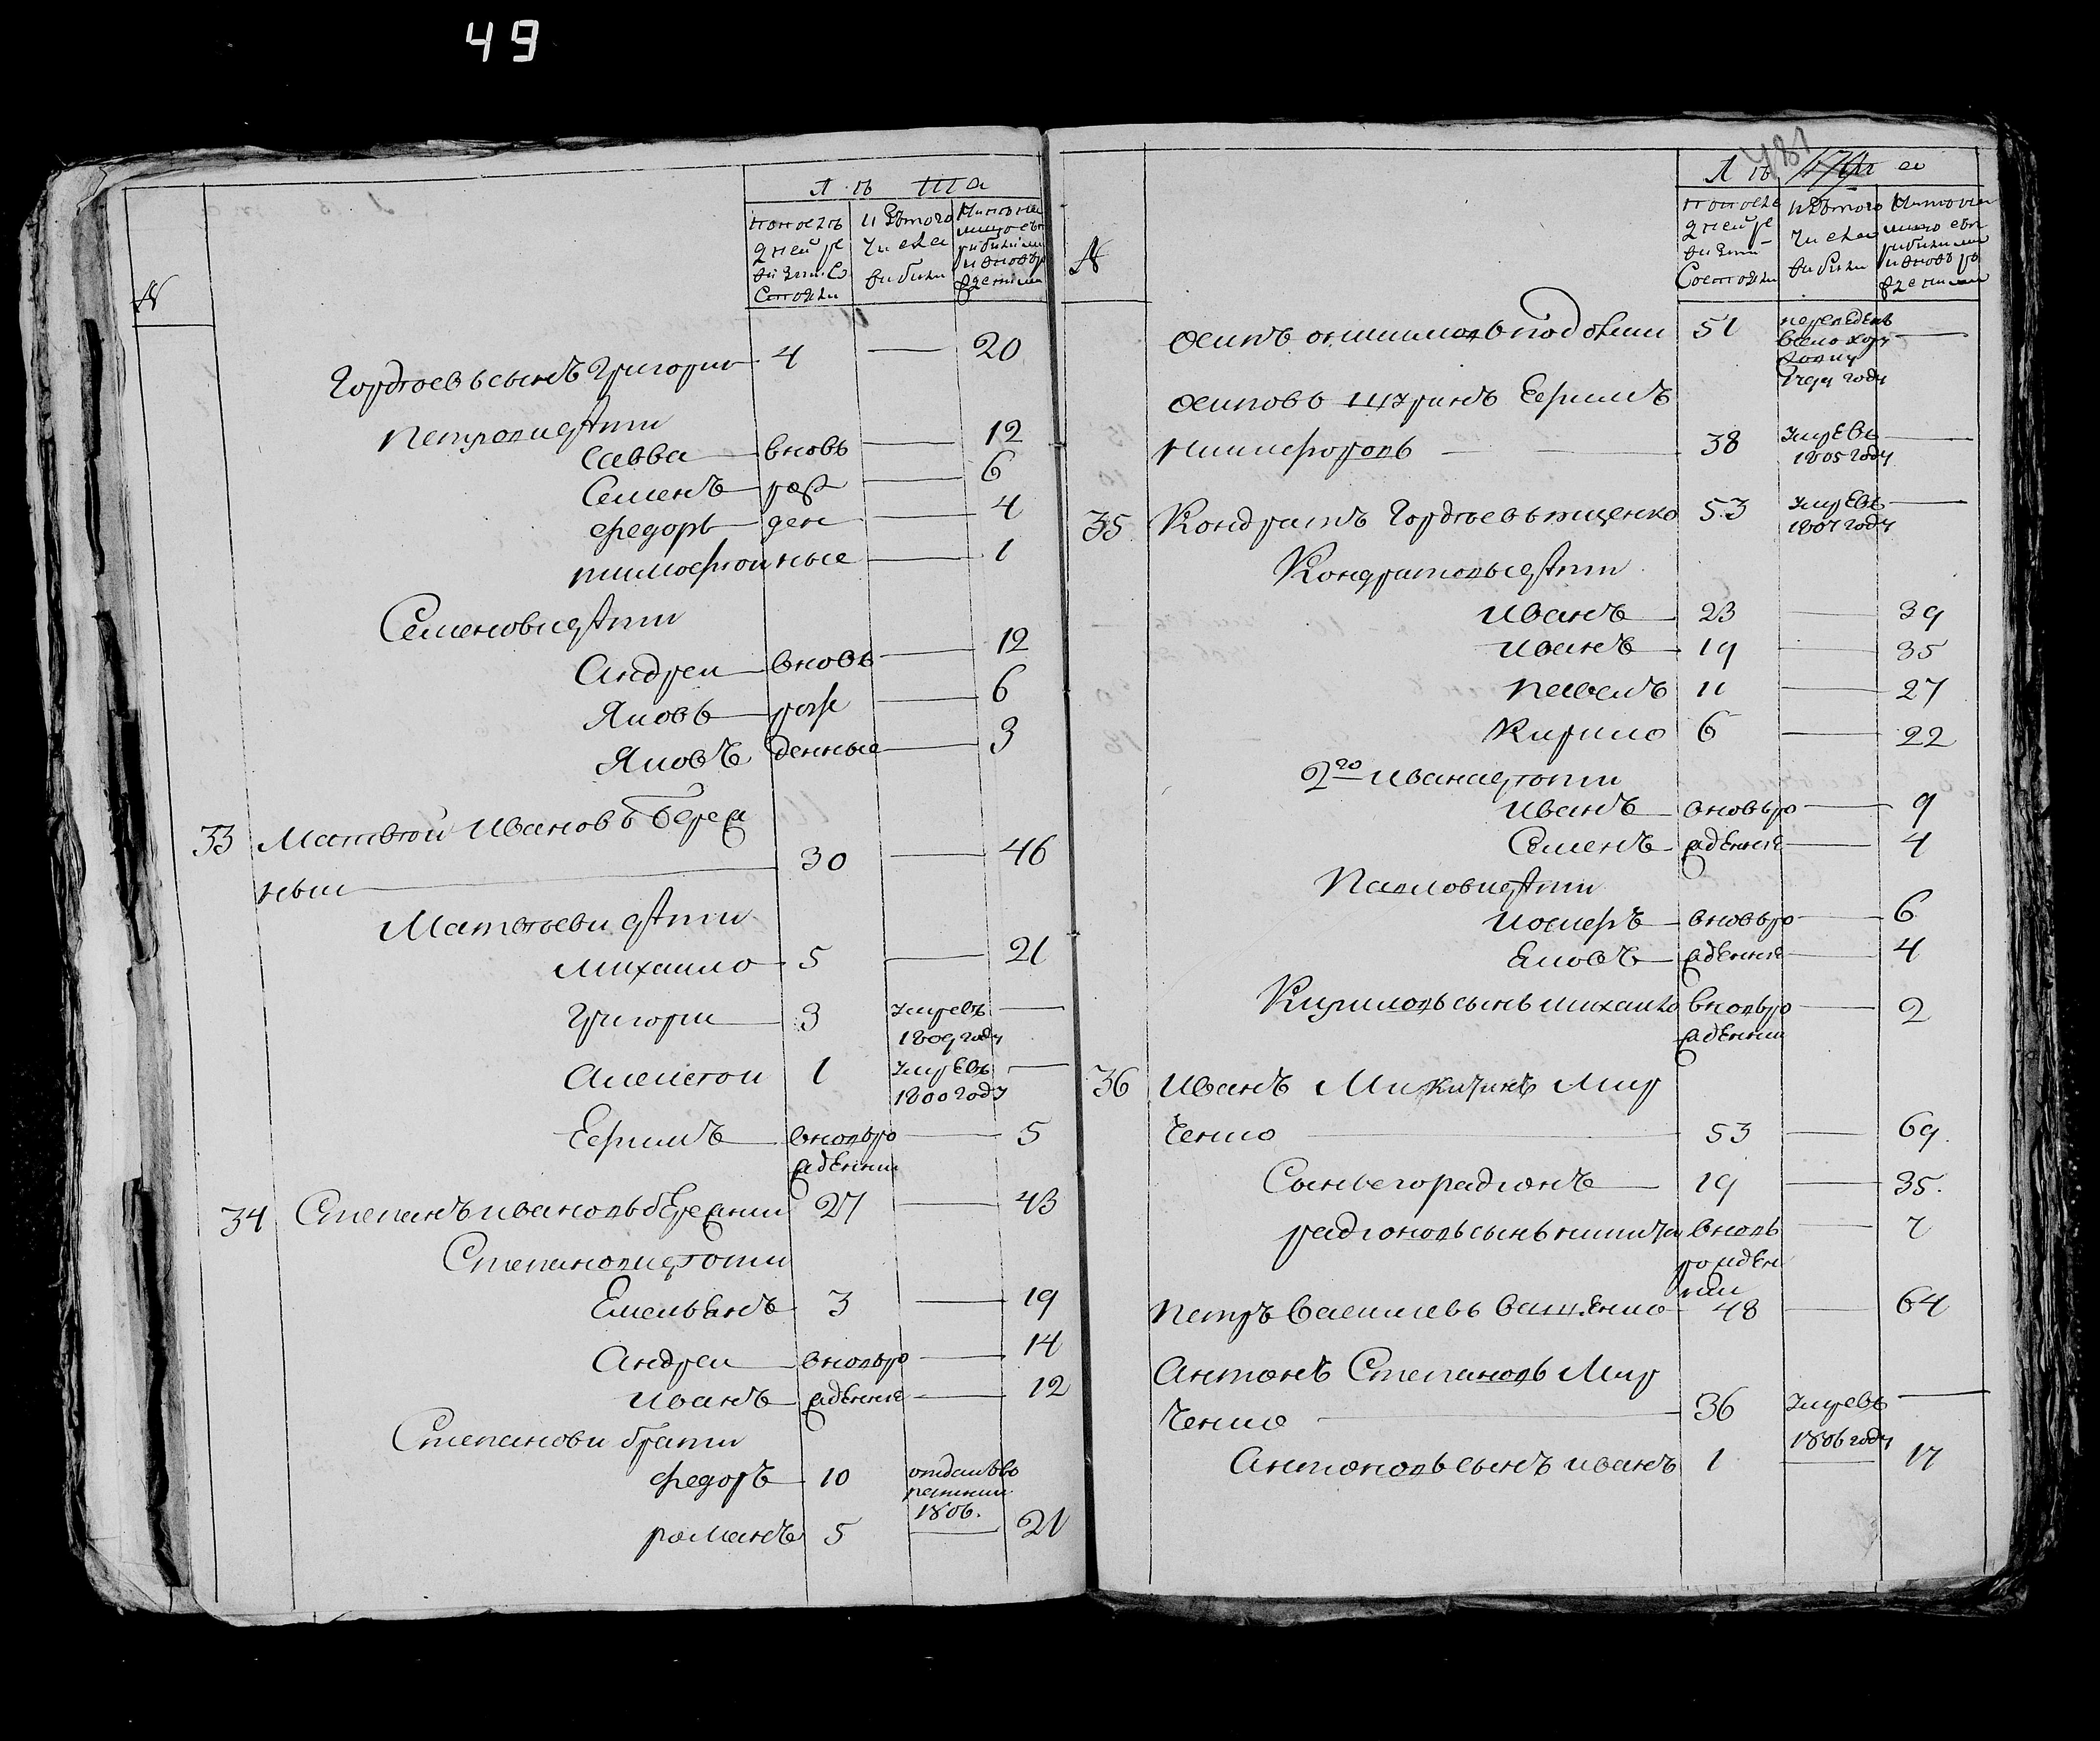 49
Лѣта
№
по послѣд
ней ре
визіи
состояли
изътого
числа
выбыли
Гордѣевъ сынъ Григории 4 — 20
Петрови дѣти
Савва вновь — 12
Семенъ рож — 6
Федоръ ден — 4
Тимофѣи ные — 1
Семенови дѣти
Андреи вновь — 12
Яковъ рож — 6
Яковъ денные — 3
33 Матвѣй Ивановъ Береж
ныи 30 — 46
Матвѣеви дѣти
Михаило 5 — 21
Григори 3 умревъ —
1809 году
Алексѣи 1 умревъ —
1800 году
Ефимъ вновь ро — 5
жденни
34 Степанъ Ивановъ Бережни 27 — 43
Степанови дѣти
Емельянъ 3 — 19
Андреи вновь ро — 14
Иванъ жденне — 12
Степанови брати
Федоръ 10 отданъ во
ратники
1806.
Романъ 5 — 21
481
Лѣта
№
по послѣ
ней ре
визіи
состояли
изътого
числа
выбыли
Осипъ 51 —
году
Осиповъ шуринъ Ефимъ
Никифоровъ — 38 умревъ —
1805 году
35 Кондратъ Гордѣевъ Тищенко 53 умревъ —
1807 году
Кондратовы дѣти
Иванъ 23 — 39
Иванъ 19 — 35
Павелъ 11 — 27
Кирило 6 — 22
2го Ивана дѣти
Иванъ вновь ро — 9
Семенъ жденне — 4
Павлови дѣти
Иосифъ вновь ро — 6
Яковъ жденне — 4
Кириловъ сынъ Михаило вновь ро — 2
жденни
36 Иванъ Никитинъ Мир
ченко 53 — 69.
Сынъ его Радіонъ 19 — 35.
Радіоновъ сынъ Никита вновь — 7
рожден
нии
Петръ Василевъ Ващенко 48 — 64
Антонъ Степановъ Мир
ченко 36 умревъ —
1806 году
Антоновъ сынъ Иванъ 1 — 17